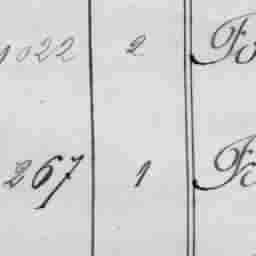 1022 2
267 1